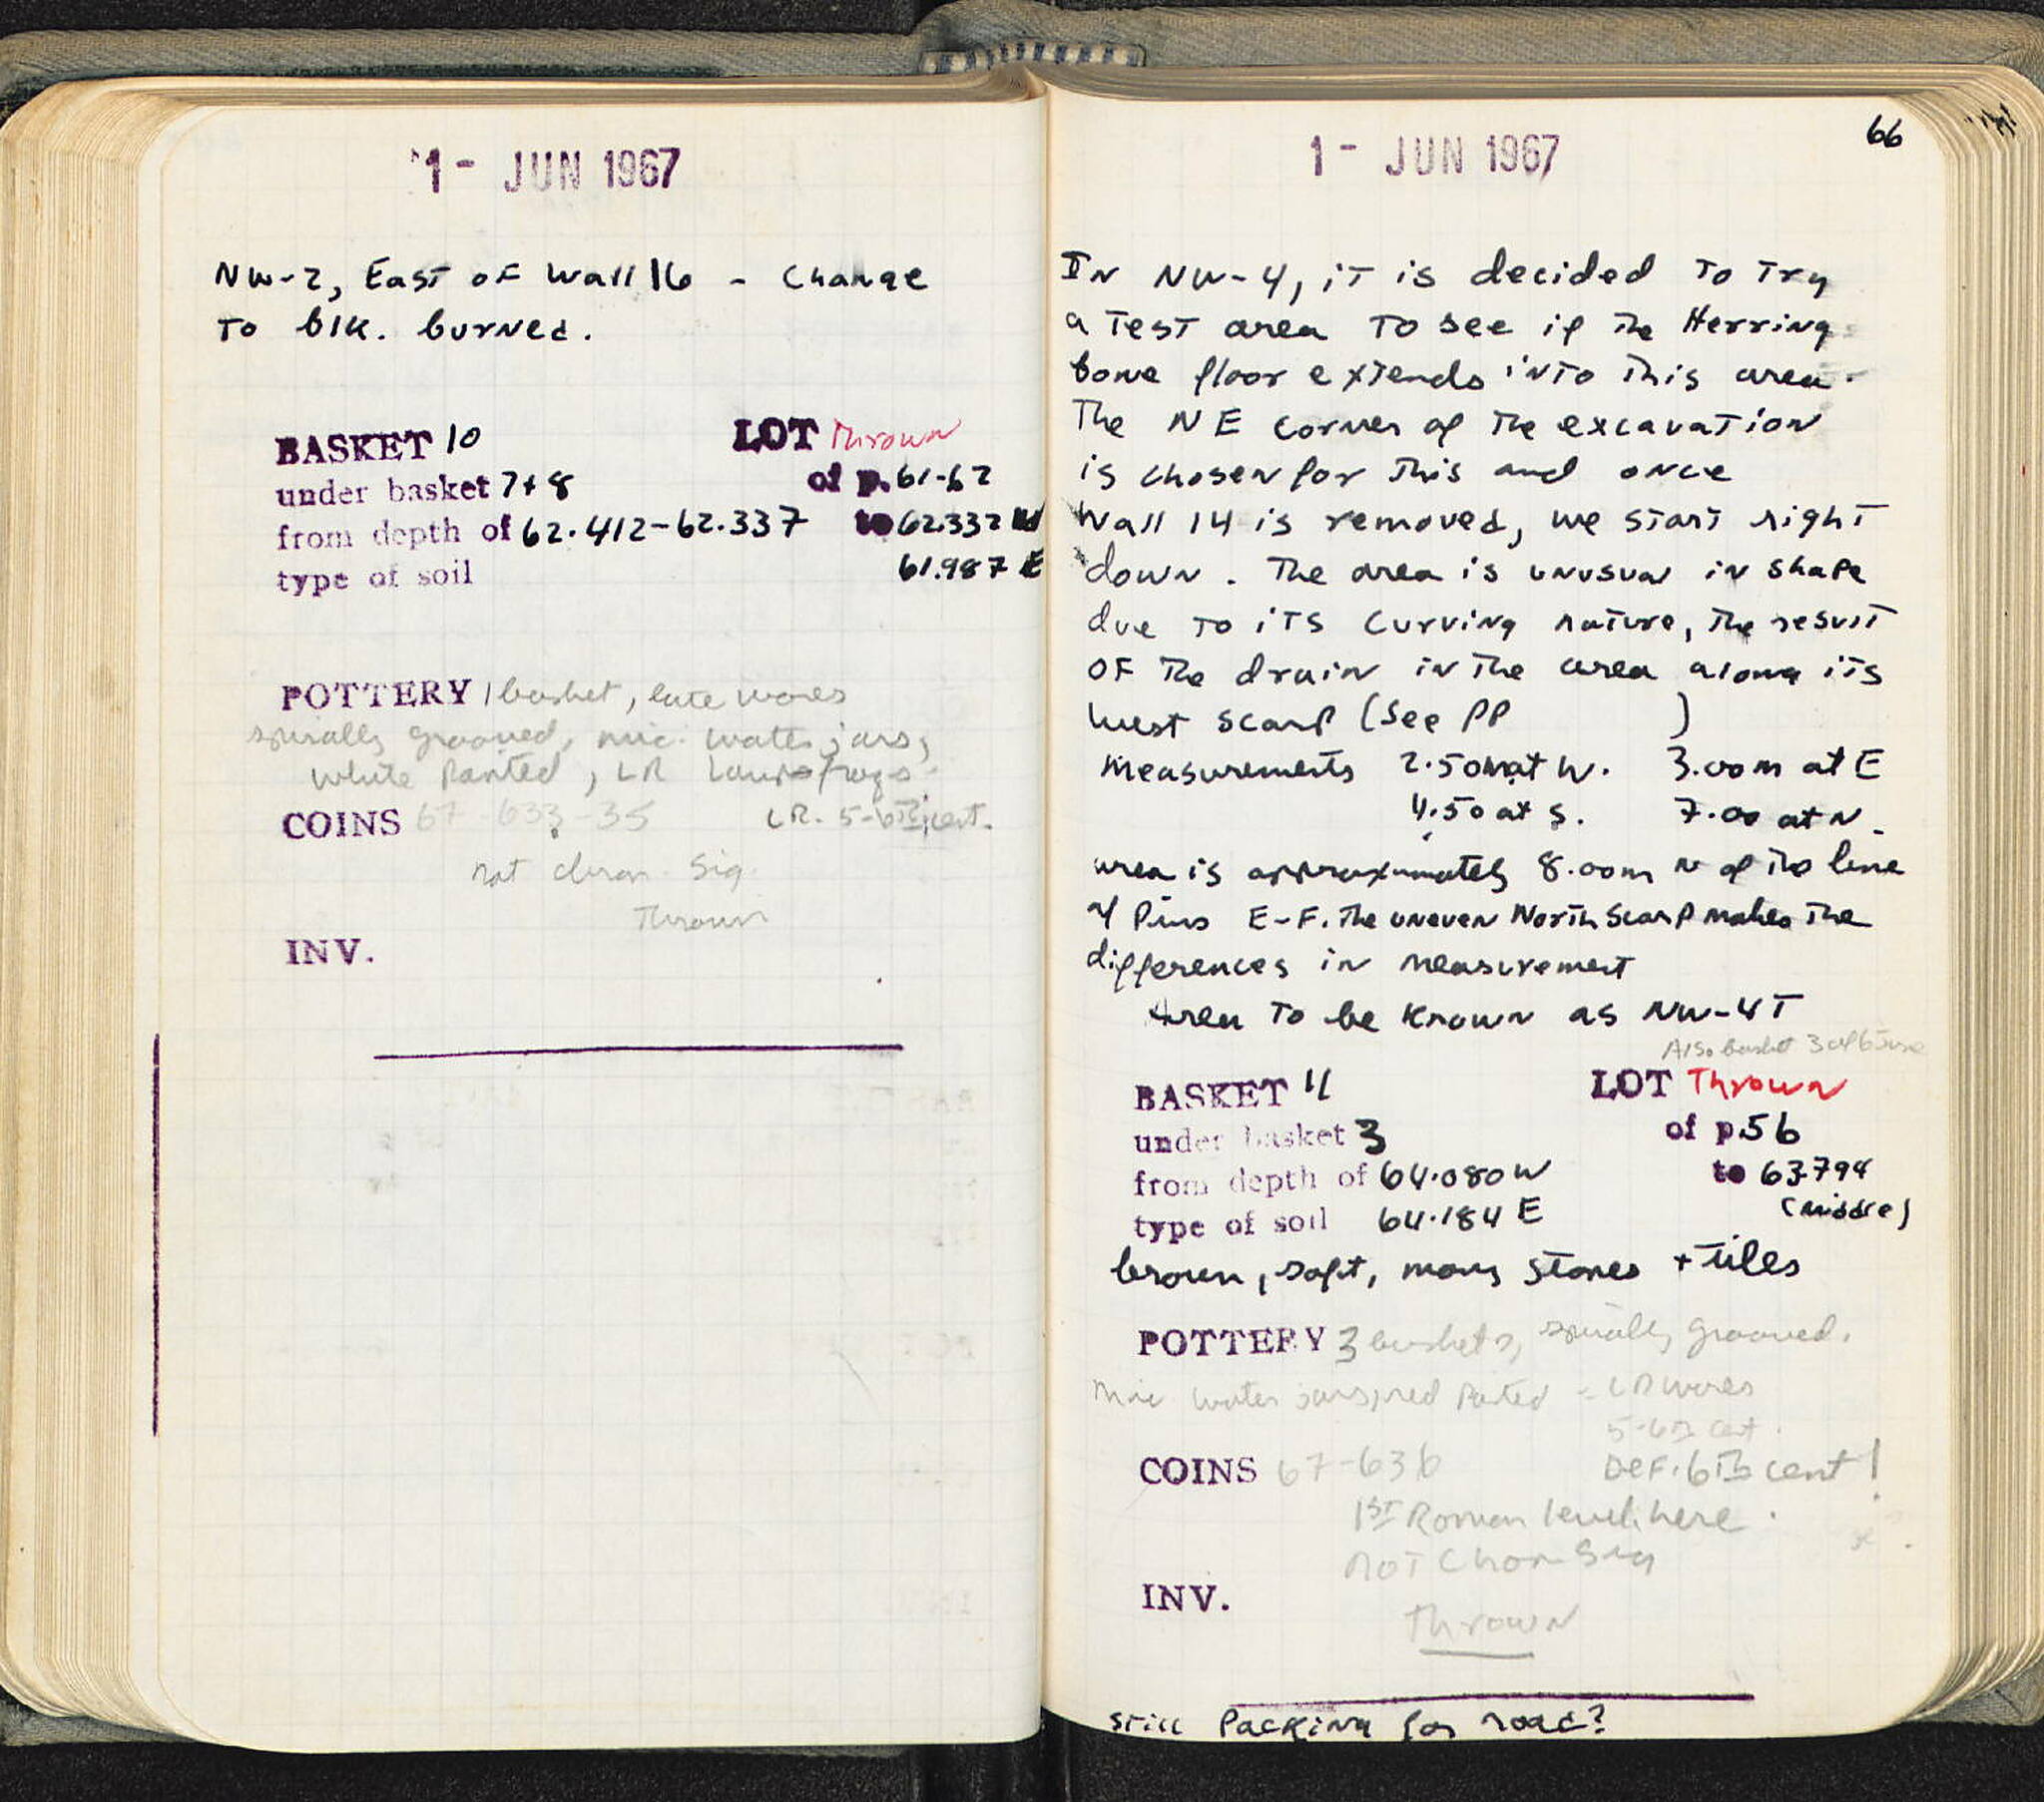 1- JUN 1967
NW-2, East of Wall 16 - Change
to blk. burned.
BASKET 10 LOT Thrown
under basket 7+8 of p. 61-62
from depth of 62.412-62.337 to 62.337 W
type of soil 61.987 E
POTTERY 1 basket, late wares
spirally grooved, mic. water jars,
white Painted, LR Lamp frags.
COINS 67-633-35 LR. 5-6th cent.
not chron. sig.
Thrown
INV.
66
1- JUN 1967
In NW-4, it is decided to try
a test area to see if the Herring
bone floor extends into this area.
The NE corner of the excavation
is chosen for this and once
Wall 14 is removed, we start right
down. The area is unusual in shape
due to its curving nature, the result
of the drain in the area along its
West scarp (See PP )
Measurements 2.50m at W. 3.00m at E
4.50 at S. 7.00 at N.
area is approximately 8.00m N of the line
of Pins E-F. The uneven North Scarp makes the
differences in measurement
Area to be known as NW-4T
Also basket 3 of 6 June
BASKET 11 LOT Thrown
under basket 3 of p. 56
from depth of 64.080 W to 63.794
type of soil 64.184 E (middle)
brown, soft, many stones + tiles
POTTERY 3 baskets, spirally grooved,
Mic water jars, red Painted - LR wares
5-6th cent.
COINS 67-636 DEF. 6th cent!
1st Roman level here.
not Chron Sig
INV.
Thrown
still Packing for road?